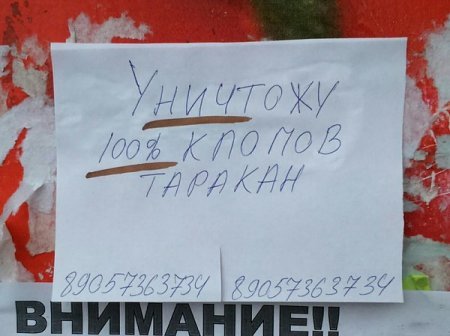 Уничтожу
100% клопов
таракан
89057363734 89057363734
ВНИМАНИЕ!!